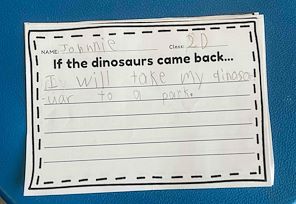 NAME: Johnnie Class: 2D
If the dinosaurs came back...
I will take my dinoso
uar to a park.